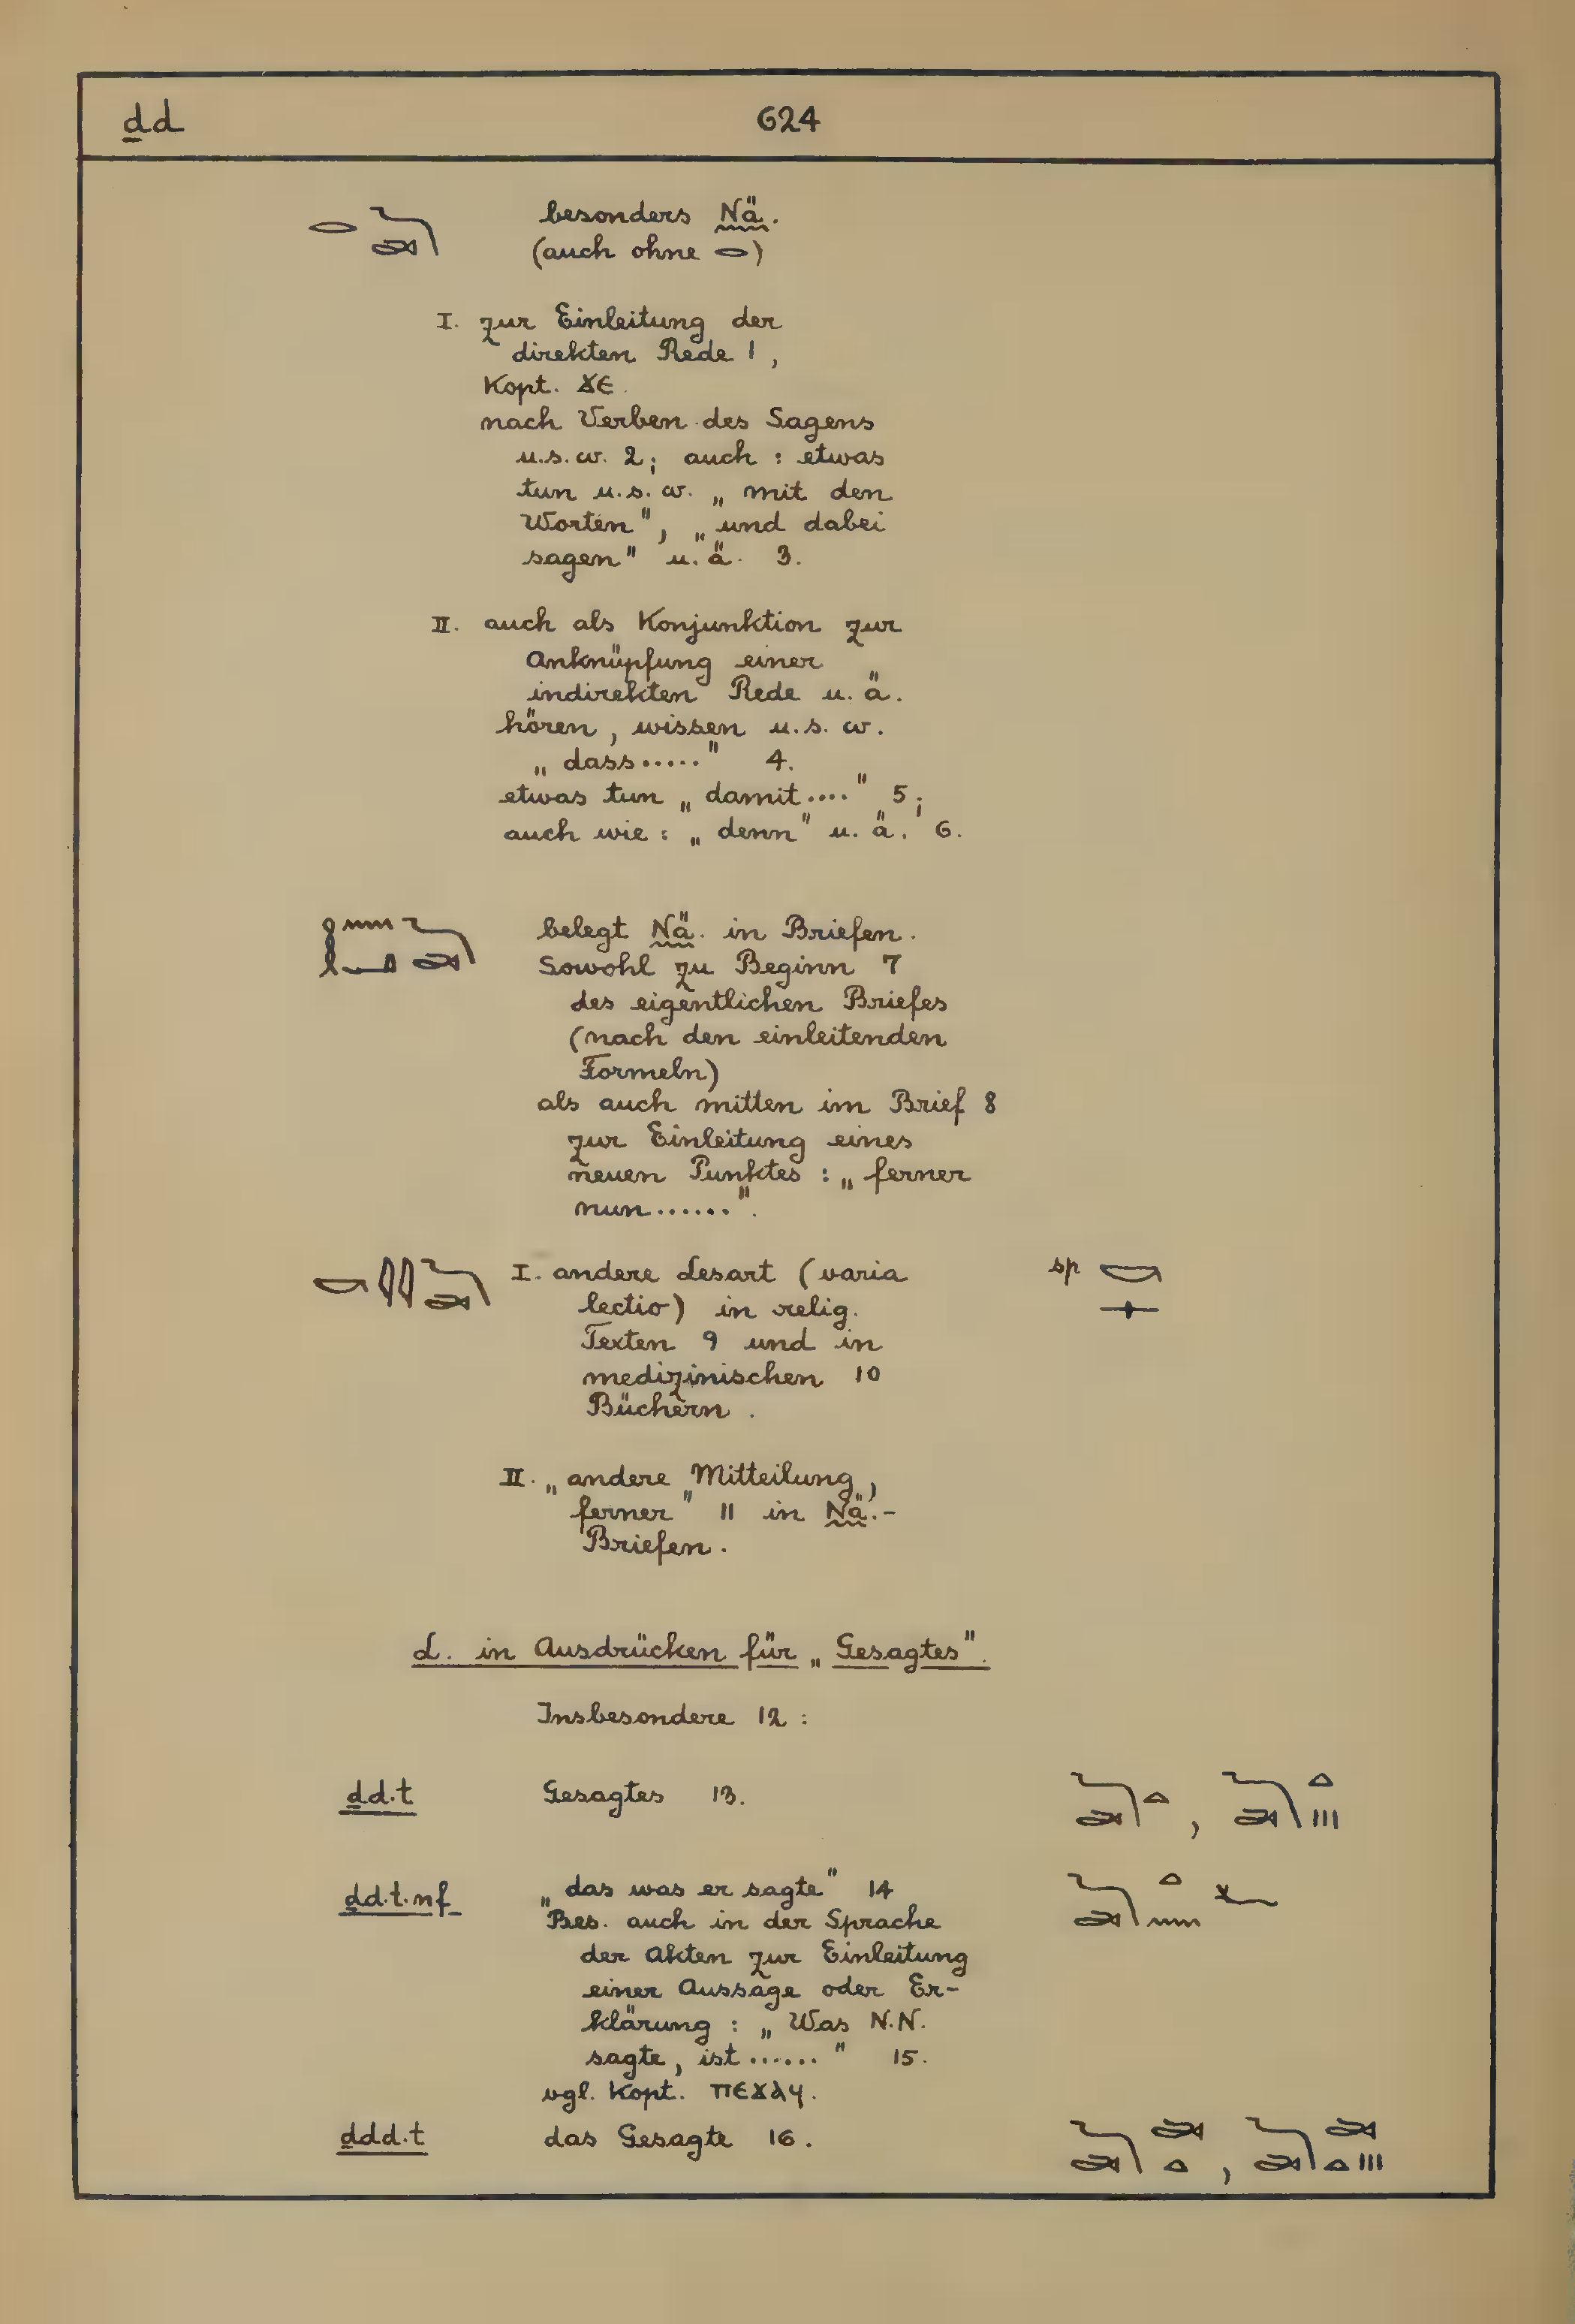 ḏd 624
𓂋𓆓𓂧 besonders Nä.
(auch ohne 𓂋)
I. zur Einleitung der
direkten Rede 1,
Kopt. ϫⲉ.
nach Verben des Sagens
u.s.w. 2; auch : etwas
tun u.s.w. „mit den
Worten", „und dabei
sagen" u.ä. 3.
II. auch als Konjunktion zur
Anknüpfung einer
indirekten Rede u. ä.
hören, wissen u.s.w.
„dass....." 4.
etwas tun „damit...." 5;
auch wie : „denn" u. ä. 6.
𓎛𓈖𓂝𓆓𓂧 belegt Nä. in Briefen.
Sowohl zu Beginn 7
des eigentlichen Briefes
(nach den einleitenden
Formeln)
als auch mitten im Brief 8
zur Einleitung eines
neuen Punktes : „ferner
nun......".
𓎡𓇌𓆓𓂧 I. andere Lesart (varia sp
lectio) in relig.
Texten 9 und in
medizinischen 10
Büchern.
II. „andere Mitteilung,
ferner" 11 in Nä.-
Briefen.
L. in Ausdrücken für „Gesagtes".
Insbesondere 12 :
ḏd.t Gesagtes 13. 𓆓𓂧𓏏, 𓆓𓂧𓏏𓏥
ḏd.t.nf „das was er sagte" 14 𓆓𓂧𓏏𓈖𓆑
Bes. auch in der Sprache
der Akten zur Einleitung
einer Aussage oder Er-
klärung : „Was N.N.
sagte, ist......" 15.
vgl. Kopt. ⲡⲉϫⲁϥ.
ḏdd.t das Gesagte 16. 𓆓𓂧𓂧𓏏, 𓆓𓂧𓂧𓏏𓏥